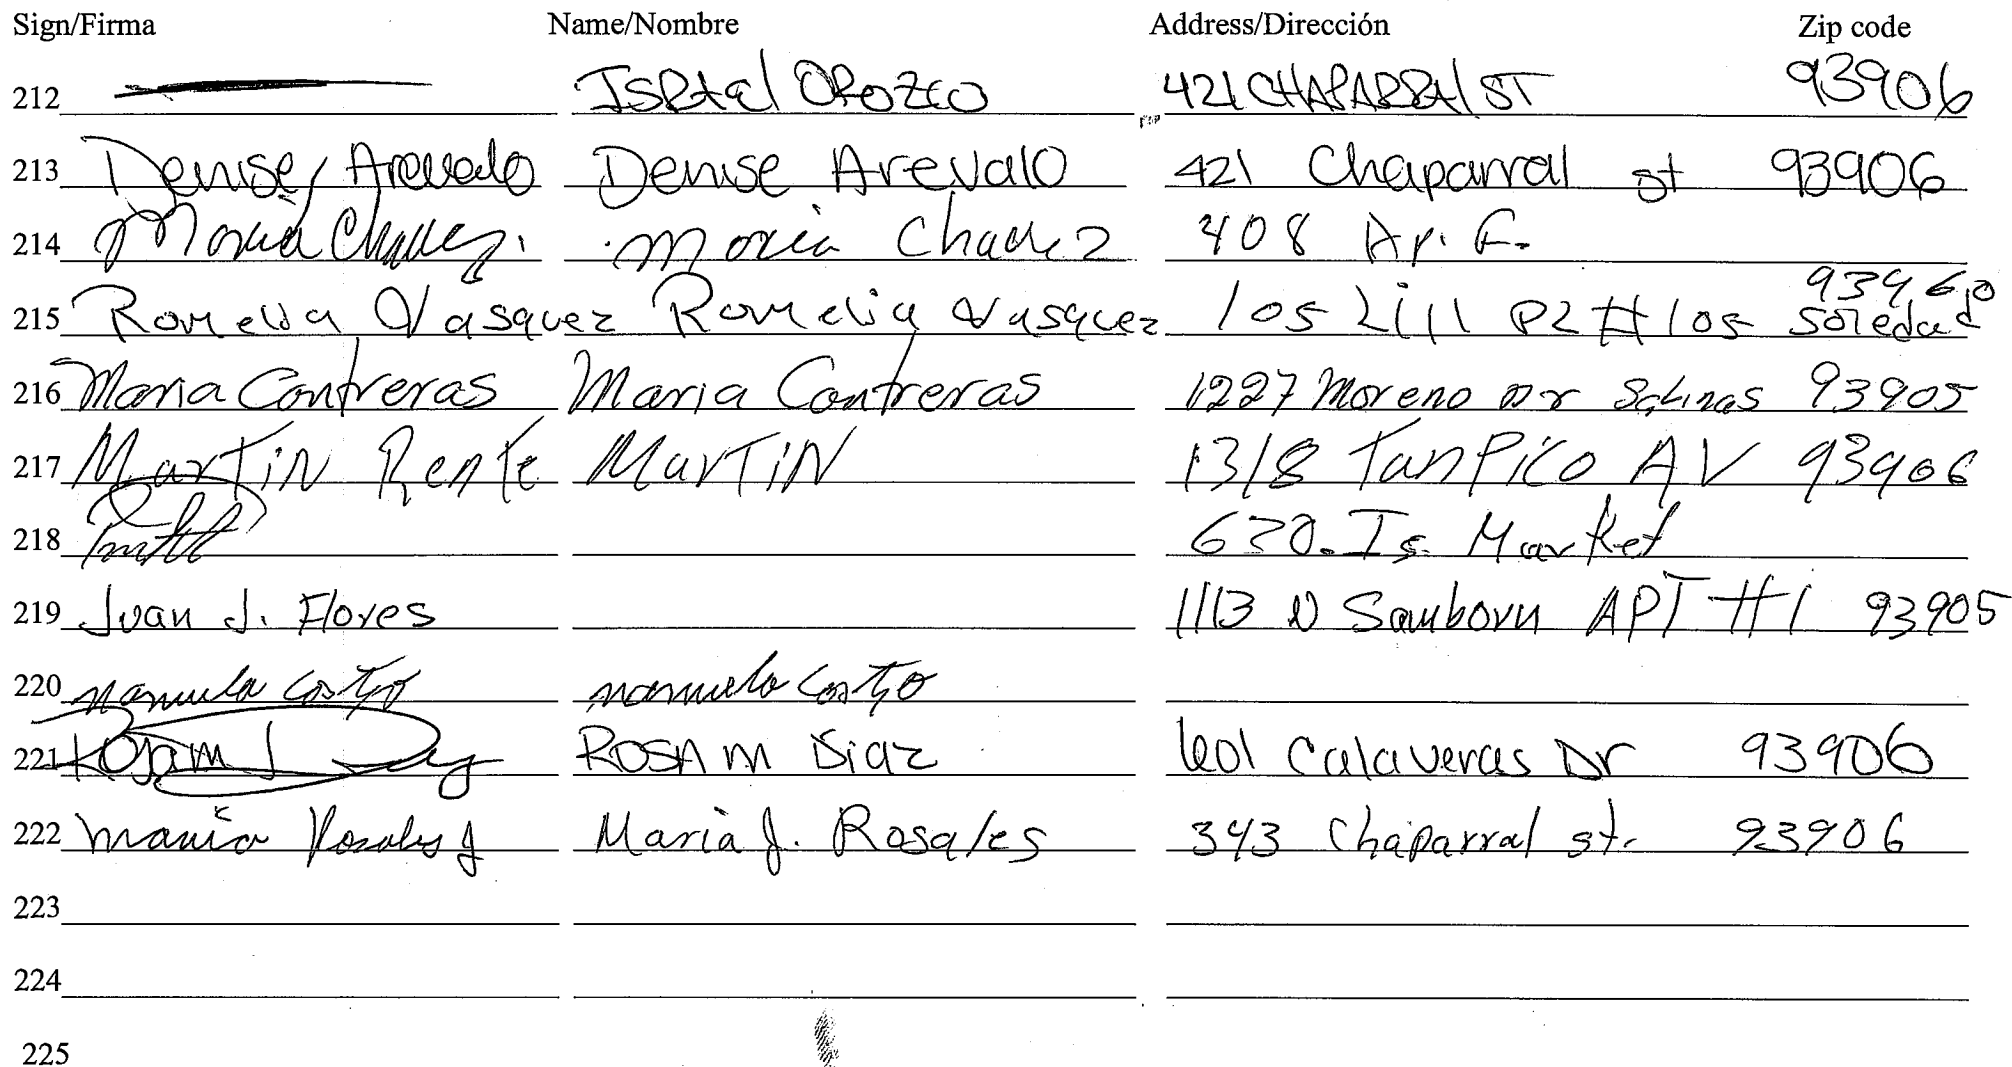 Sign/Firma Name/Nombre Address/Dirección Zip code
212 Orozco 421 CHAPARRAl ST 93906
213 Denise Arevalo Denise Arevalo 421 Chaparral st 93906
214 Maria Chavez. Maria Chavez 408 Ap. F.
93960
215 Romelia Vasquez Romelia Vasquez #105 Soledad
216 Maria Contreras Maria Contreras 1227 Moreno Dr Salinas 93905
217 MarTiN MarTiN 1318 TanPico AV 93906
218 Market
219 Juan J. Flores 1113 N Sanborn APT #1 93905
220 manuela Castro manuela Castro
221 Rosa m ROSA M Diaz 601 Calaveras Dr 93906
222 maria Rosales J Maria J. Rosales 343 Chaparral st. 93906
223
224
225